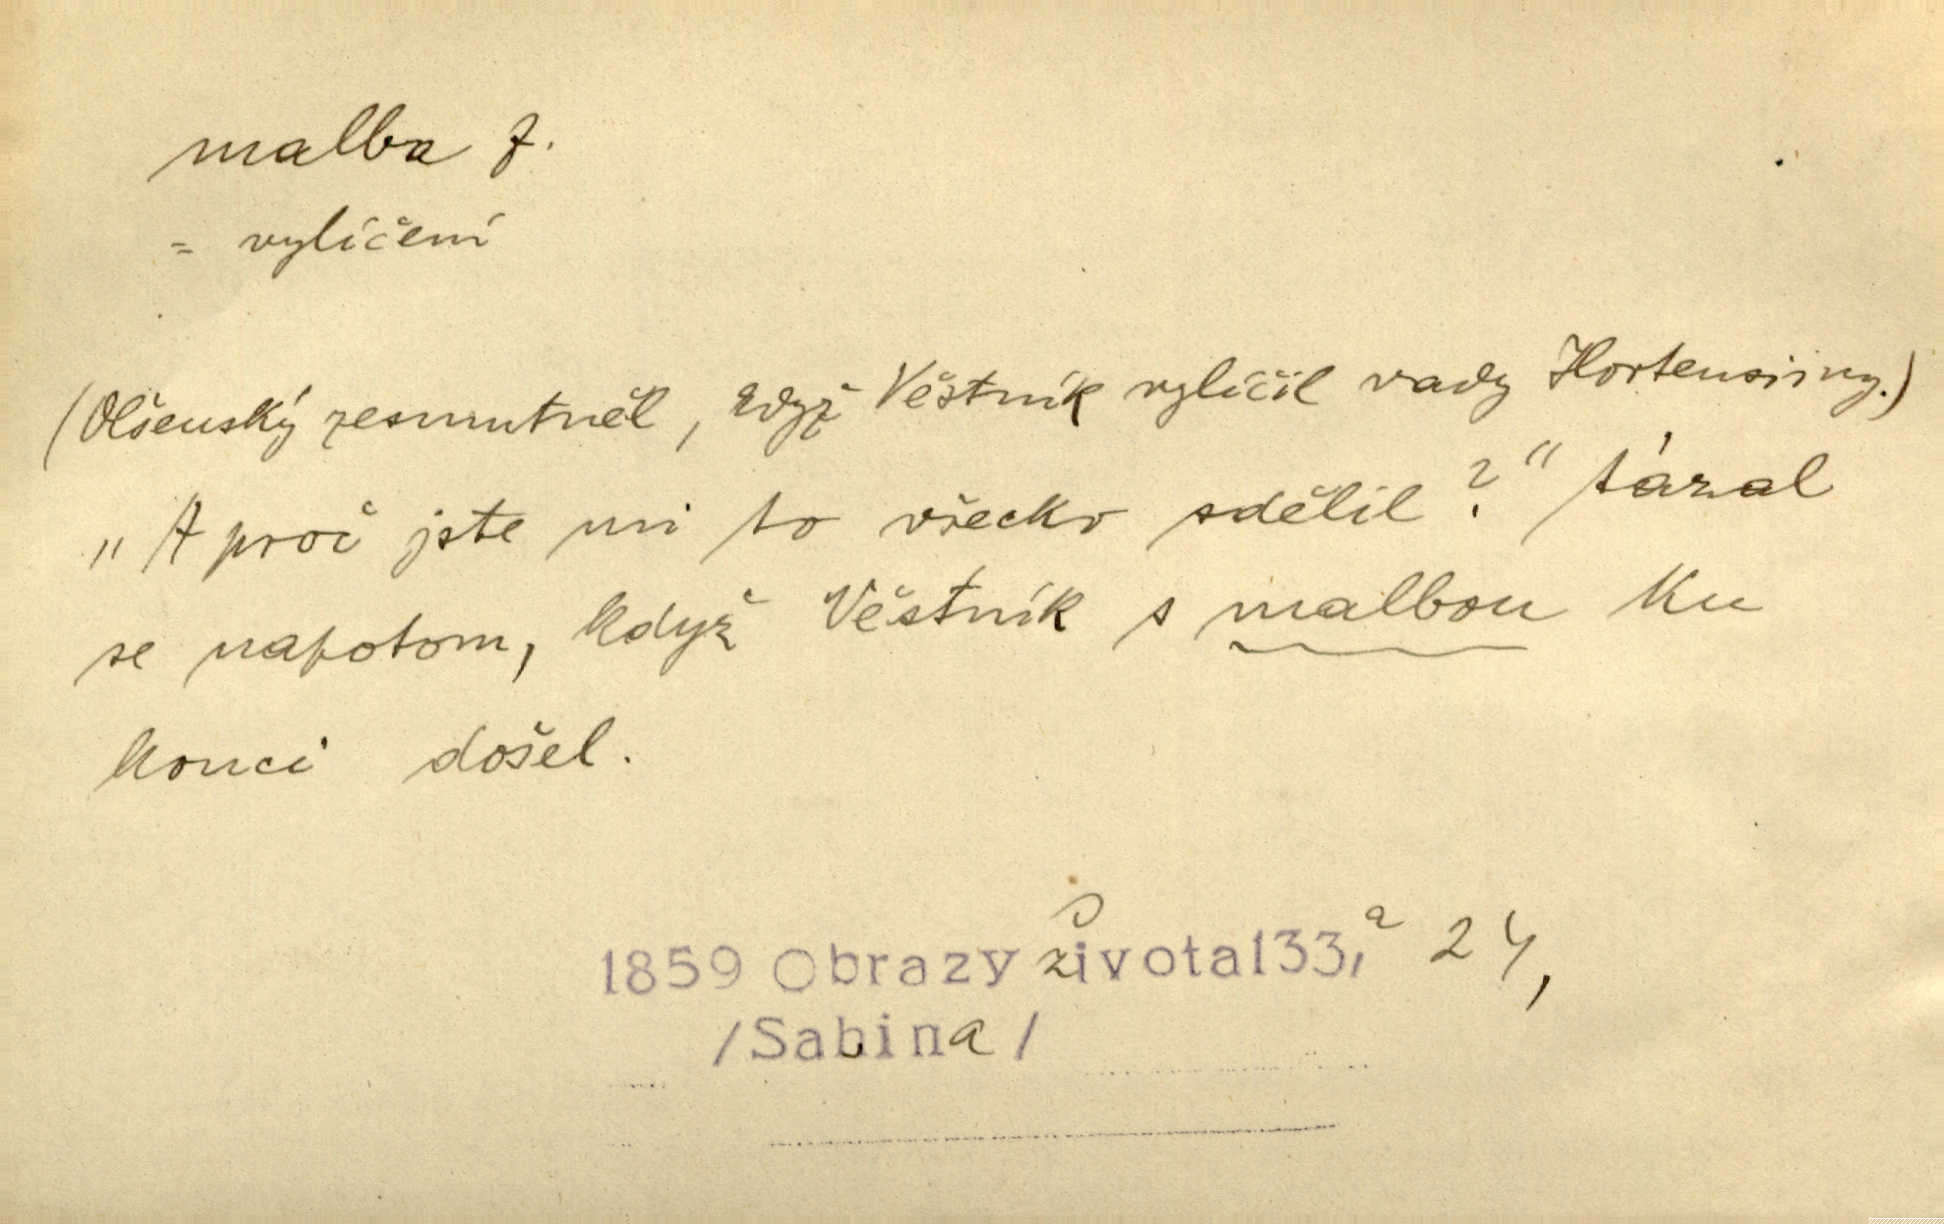 malba f.
= vylíčení
(Olšenský zesmutněl, když Věstník vylíčil vady Hortensiiny.)
„A proč jste mi to všecko sdělil?“ tázal
se napotom, když Věstník s malbou ku
konci došel.
1859 Obrazy života 133,a 24,
/Sabina/